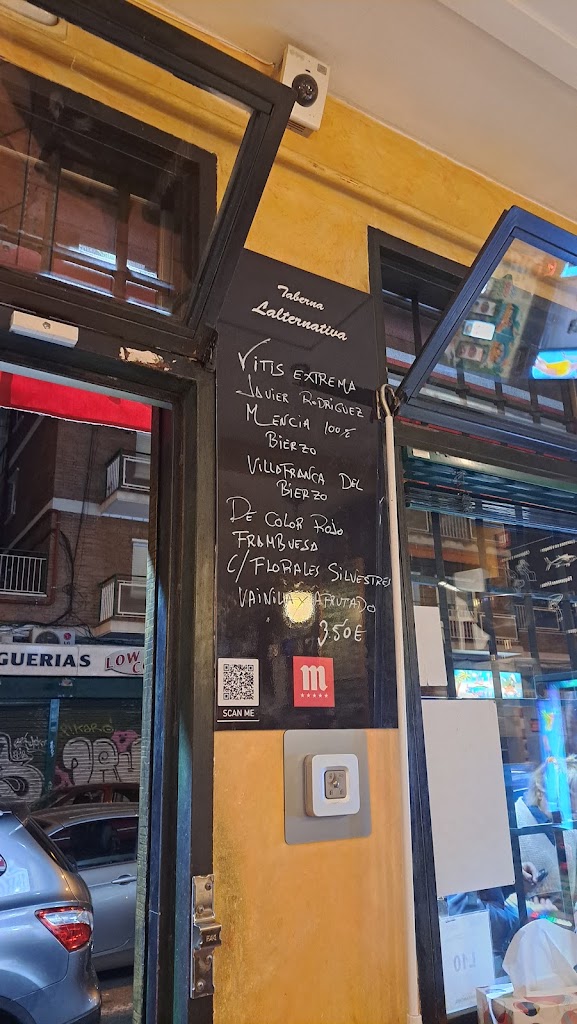 Taberna
Lalternativa
VITIS EXTREMA
JAVIER RODRIGUEZ
MENCIA 100%
BIERZO
VILLAFRANCA DEL
BIERZO
DE COLOR ROJO
FRAMBUESA
C/ FLORALES SILVESTRES
VAINILLA Y AFRUTADO
3,50€
m
SCAN ME
GUERIAS
LOW
L10